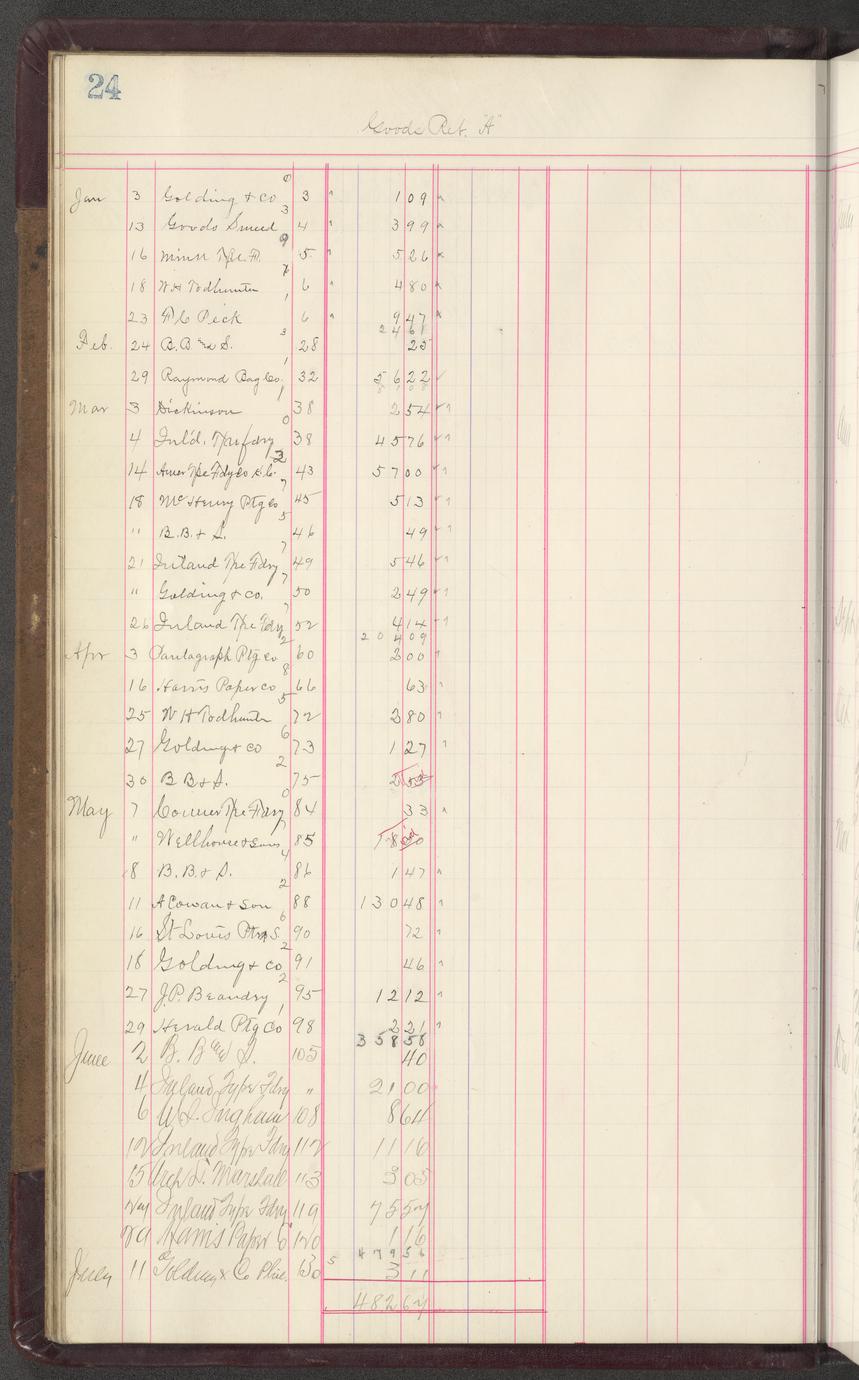 24
Goods Ret. "A"
Jan 3 Golding & Co 3 1 09
13 Goods Smeed 4 3 99
16 Minn Tpe. F. 5 5 26
18 W H Todhunter 6 4 80
23 F C Peck 6 9 47
24 61
Feb. 24 B. B. & S. 28 25
29 Raymond Bag Co. 32 56 22
Mar 3 Dickinson 38 2 54
4 Inl'd. Tpe fdry 38 45 76
14 Amer Tpe Fdy Co 43 57 00
18 McHenry Ptg Co 45 5 13
" B. B. & S. 46 49
21 Inland Tpe Fdry 49 5 46
" Golding & Co. 50 2 49
26 Inland Tpe Fdry 52 4 14
204 09
Apr 3 Pantagraph Ptg Co 60 2 00
16 Harris Paper Co 66 63
25 W H Todhunter 72 2 80
27 Golding & Co 73 1 27
30 B B & S. 75
May 7 Conner Tpe Fdry 84 33
" Wellhouse & Sons 85
8 B. B. & S. 86 1 47
11 A Cowan & Son 88 130 48
16 St Louis Ptrs S. 90 72
18 Golding & Co 91 46
27 J. P. Beaudry 95 12 12
29 Herald Ptg Co 98 2 21
358 58
June 2 B. B & S. 105 40
4 Inland Type Fdry " 21 00
6 W. S. Ingham 108 8 64
12 Inland Type Fdry 112 11 16
15 Arch L. Marshall 113 3 05
24 Inland Type Fdry 119 75 57
29 Harris Paper Co 120 1 16
479 56
July 11 Golding & Co Phil. 130 3 11
482 67